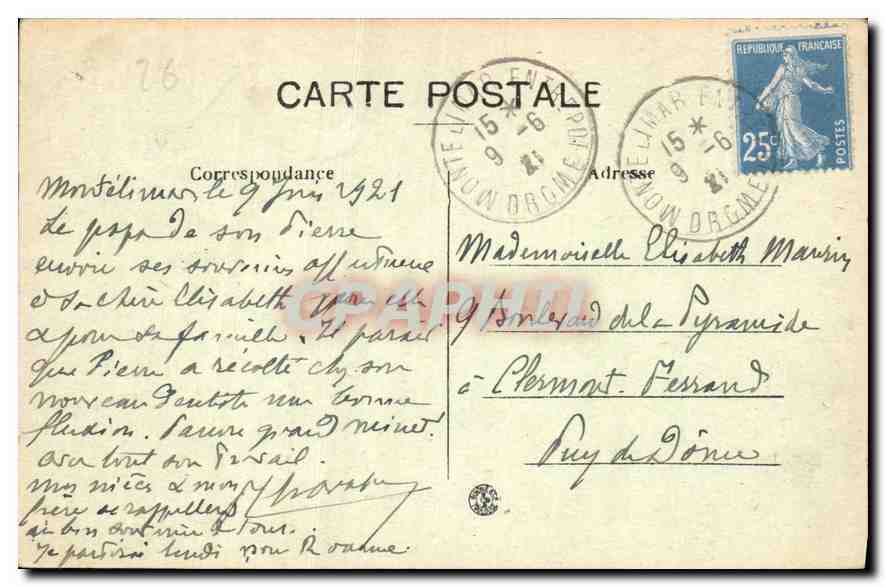 26
REPUBLIQUE FRANÇAISE
25c
POSTES
CARTE POSTALE
MONTELIMAR ENTREPOT
15 *
9 -6
21
DROME
MONTELIMAR ENT
15 *
9 -6
21
DROME
Correspondance
Adresse
Montélimar, le 9 Juin 1921
Le papa de son Pierre
envoie ses souvenirs affectueux
à sa chère Elisabeth
& pour sa famille. Il paraît
que Pierre a récolté chez son
nouveau dentiste une bonne
fluxion. Pauvre grand minet!
avec tout son travail.
mes nièces & mon
frère se rappellent
au bon souvenir de tous.
Je partirai lundi pour Roanne.
Mademoiselle Elisabeth Maurin
9 Boulevard de la Pyramide
à Clermont-Ferrand
Puy de Dôme
CPAPHIL